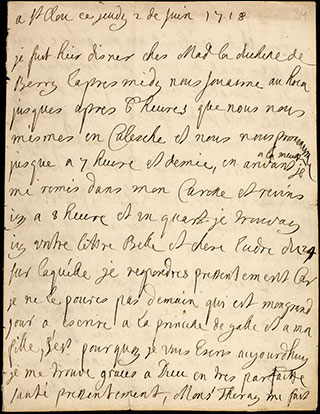 a St Clou ce jeudy 2 de juin 1718
je fust hier disner chés Mad la duchesse de
Berry l'apres midy nous jouasme au hoca
jusques apres 6 heures que nous nous
mismes en Calesche et nous nous promenas
jusque a 7 heure et demie, en arivant je
a la muette
me remis dans mon Carosse et revins
icy a 8 heure et un quart je trouvay
icy vottre lettre Belle et chere du 24
sur laquelle je respondres pressentement Car
je ne le poures pas demain qui est mon grand
jour a escrire a la princesse de galle et a ma
fille, c'est pourquoy je vous Escris aujourdhuy
je me trouve graces a Dieu en tres parfaitte
santé pressentement, Mons Theray me fait